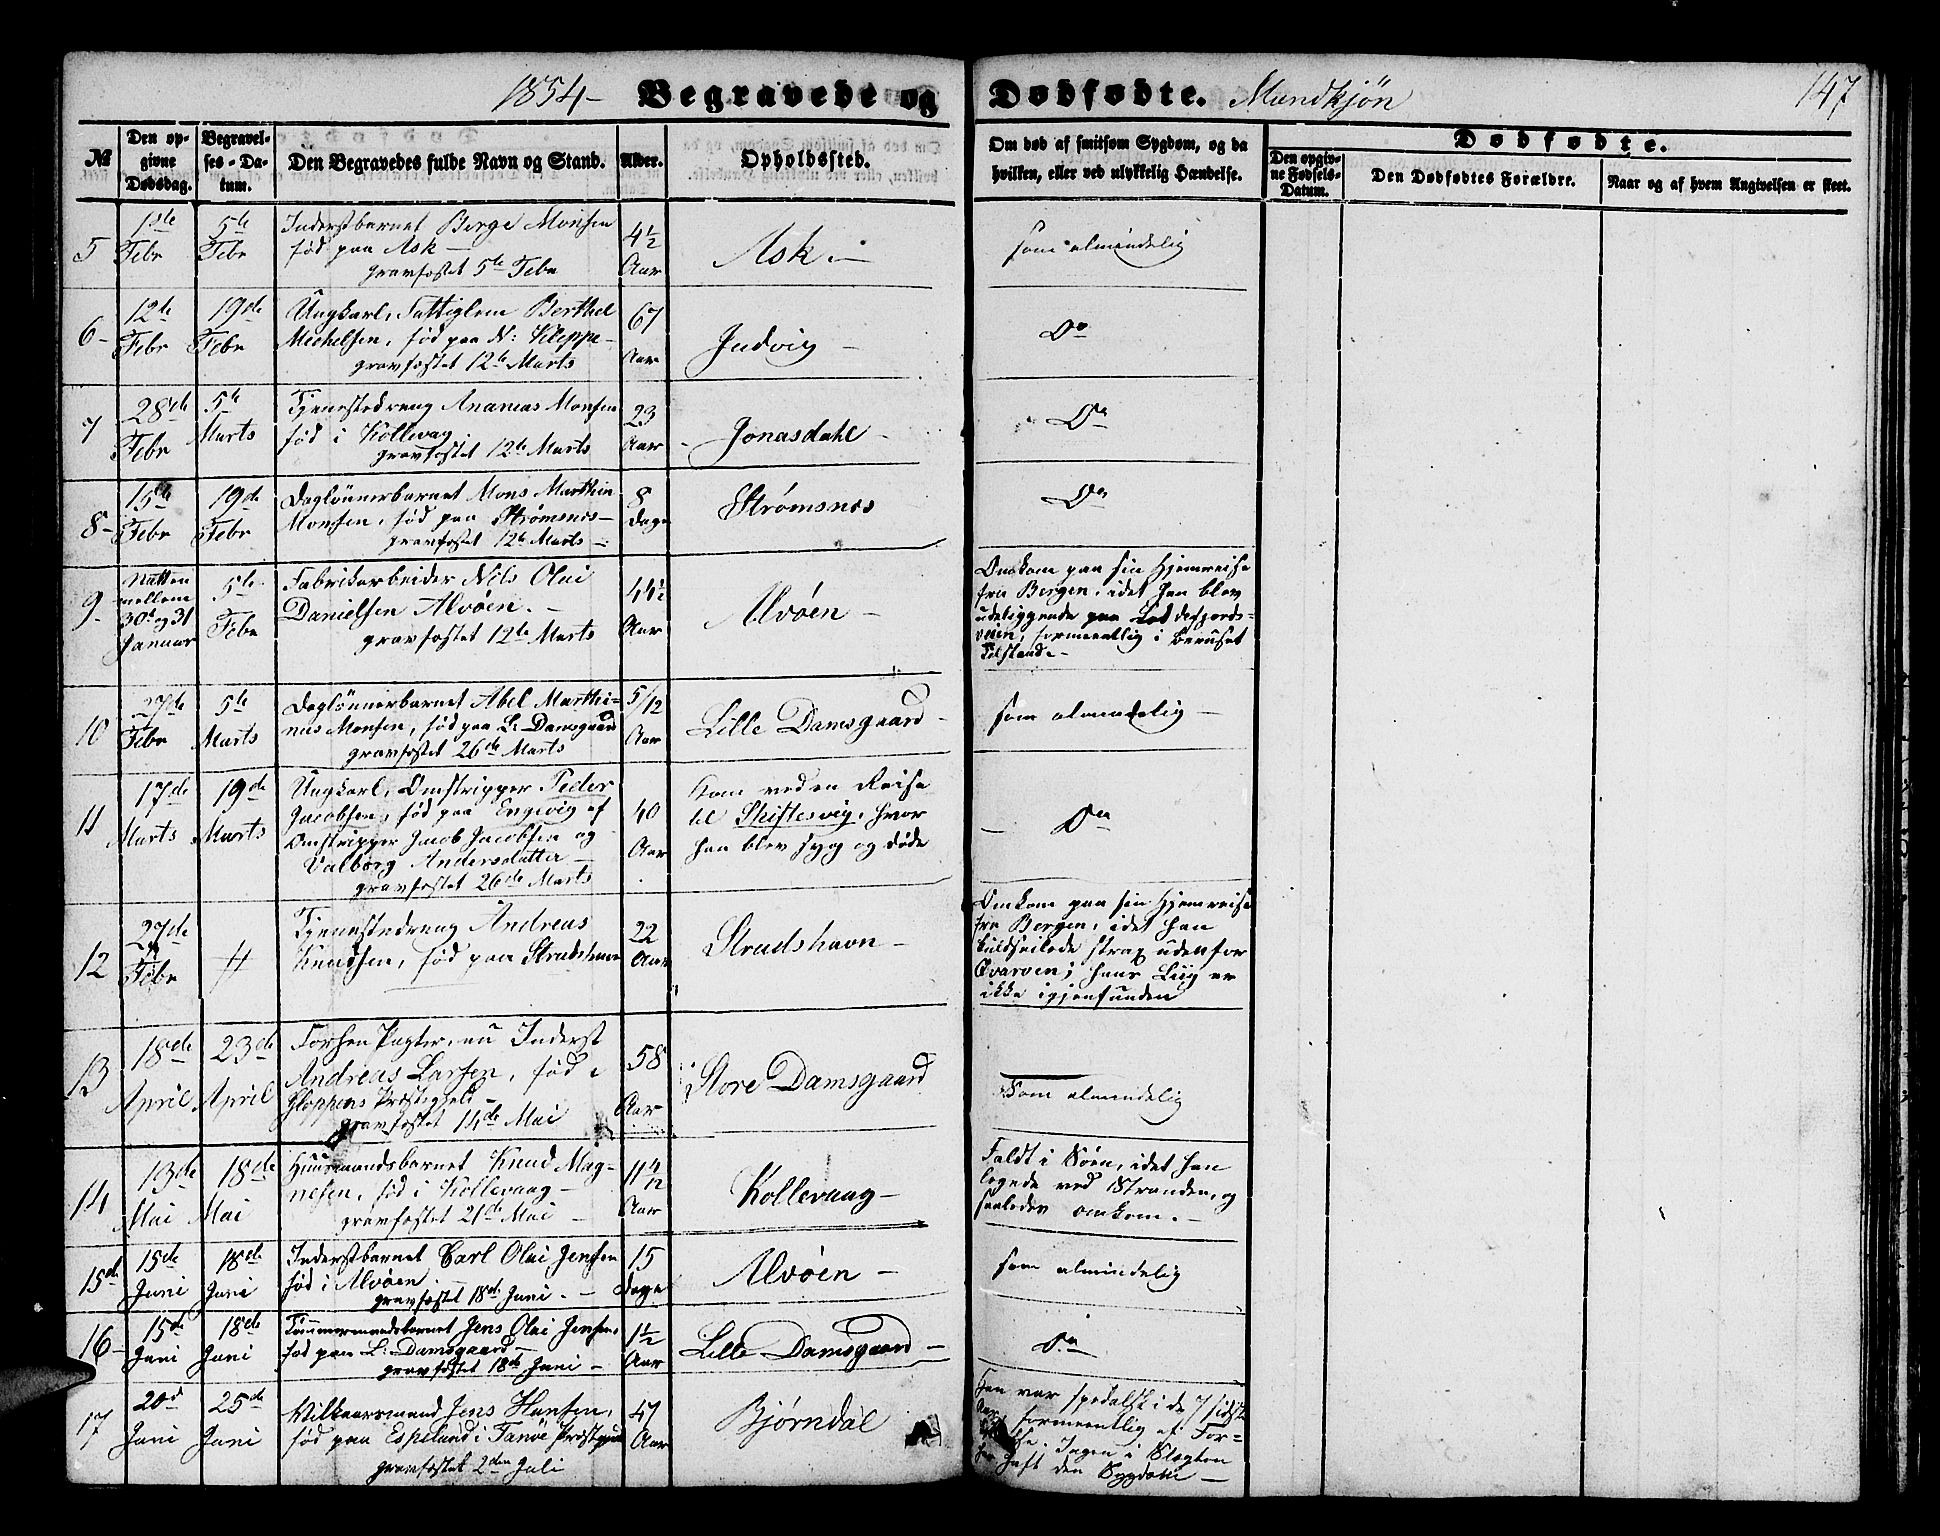 1854 – Begravede og Dødfødte. Mandkjøn 147
№
Den opgivne Dødsdag.
Begravelses-Datum.
Den Begravedes fulde Navn og Stand.
Alder.
Opholdssted.
Om død af smitsom Sygdom, og da hvilken, eller ved ulykkelig Hændelse.
Dødfødte.
Den opgivne Fødsels-Datum.
Den Dødfødtes Forældre.
Naar og af hvem Angivelsen er skeet.
5
1ste Febr
5te Febr
Inderstbarnet Berge Monsen
fød paa Ask –
gravfæstet 5te Febr
4½ Aar
Ask. –
som almindelig
6 –
12te Febr
19de Febr
Ungkarl, Fattiglem Berthel
Michelsen, fød paa N: Kleppe –
gravfæstet 12te Marts
67 Aar
Judvig –
Do
7
28de Febr
5te Marts
Tjenestedreng Ananias Monsen
fød i Kollevag
gravfæstet 12te Marts
23 Aar
Jonasdahl –
Do
8 –
15de Febr
19de Febr
Daglønnerbarnet Mons Marthin
Monsen, fød paa Strømsnes –
gravfæstet 12te Marts –
8 Dage
Strømsnes
Do
9 –
Natten
mellem
30te og 31
Januar
5te Febr
Fabrikarbeider Nils Olai
Danielsen Alvøen. –
gravfæstet 12te Marts
44½ Aar
Alvøen –
Omkom paa sin Hjemreise
fra Bergen, idet han blev
udeliggende paa Loddefjords-
veien, formeentlig i beruset
Tilstand. –
10
27de Febr
5te Marts
Daglønnerbarnet Abel Marthi-
nus Monsen, fød paa L: Damsgaard
gravfæstet 26de Marts
5/12 Aar
Lille Damsgaard –
som almindelig –
11
17de Marts
19de Marts
Ungkarl, Omstripper Peder
Jacobsen, fød paa Engevig af
Omstripper Jacob Jacobsen og
Valborg Andersdatter –
gravfæstet 26de Marts
40 Aar
Kom ved en Reise
til Skiftesvig, hvor
han blev syg og døde
– Do
12
27de Febr
//
Tjenestedreng Andreas
Knudsen, fød paa Strudshavn
22 Aar
Strudshavn –
Omkom paa sin Hjemreise
fra Bergen, idet han
kuldseilede strax udenfor
Qvarven; hans Liig er
ikke igjenfunden
13
18de April
23de April
Forhen Pagter, nu Inderst
Andreas Larsen, fød i
Gloppens Præstegjeld –
gravfæstet 14de Mai
58 Aar
Store Damsgaard
Som almindelig
14
13de Mai
18de Mai
Huusmandsbarnet Knud Mag-
nesen, fød i Kollevaag –
gravfæstet 21de Mai –
11 4/12 Aar
Kollevaag –
Faldt i Søen, idet han
legede ved Stranden, og
saaledes omkom. –
15de
15de Juni
18de Juni
Inderstbarnet Carl Olai Jensen
fød i Alvøen
gravfæstet 18de Juni. –
15 Dage
Alvøen –
som almindelig
16 –
15de Juni
18de Juni
Tømmermandsbarnet Jens Olai Jensen,
fød paa L: Damsgaard –
gravfæstet 18de Juni –
1½ Aar
Lille Damsgaard –
Do
17
20d Juni
25de Juni
Vilkaarsmand Jens Hansen,
fød paa Espeland i Fanøe Præstegjeld
gravfæstet 2den Juli
47 Aar
Bjørndal
Han var spedalsk i de 7 sidste
Aar, formeentlig af For-
Ingen i Slægten
har haft den Sygdom –